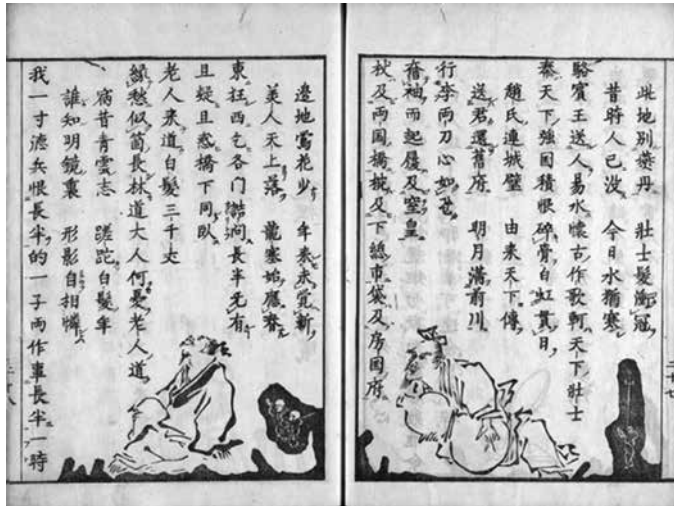 此地別燕丹 壮士髮衝冠
昔時人已没 今日水猶寒
駱賓王送人易水懐古作歌軻天下壮士
秦天下強国積恨碎骨白虹貫日
趙氏連城璧 由来天下傳
送君還舊府 明月満前川
行李両刀心如
奮袖而起履及窒皇
杖及両国橋 及下 市 及 国府
邊地鶯花少 年来未覚新
美人天上落 龍塞始應春
東狂西乞各門 問長半先有
且疑且惑橋下同臥
老人来道白髮三千丈
縁愁似箇長林道大人何憂老人道
宿昔青雲志 蹉跎白髮年
誰知明鏡裏 形影自相憐
我一寸 兵恨長半的一子両作事長半一時